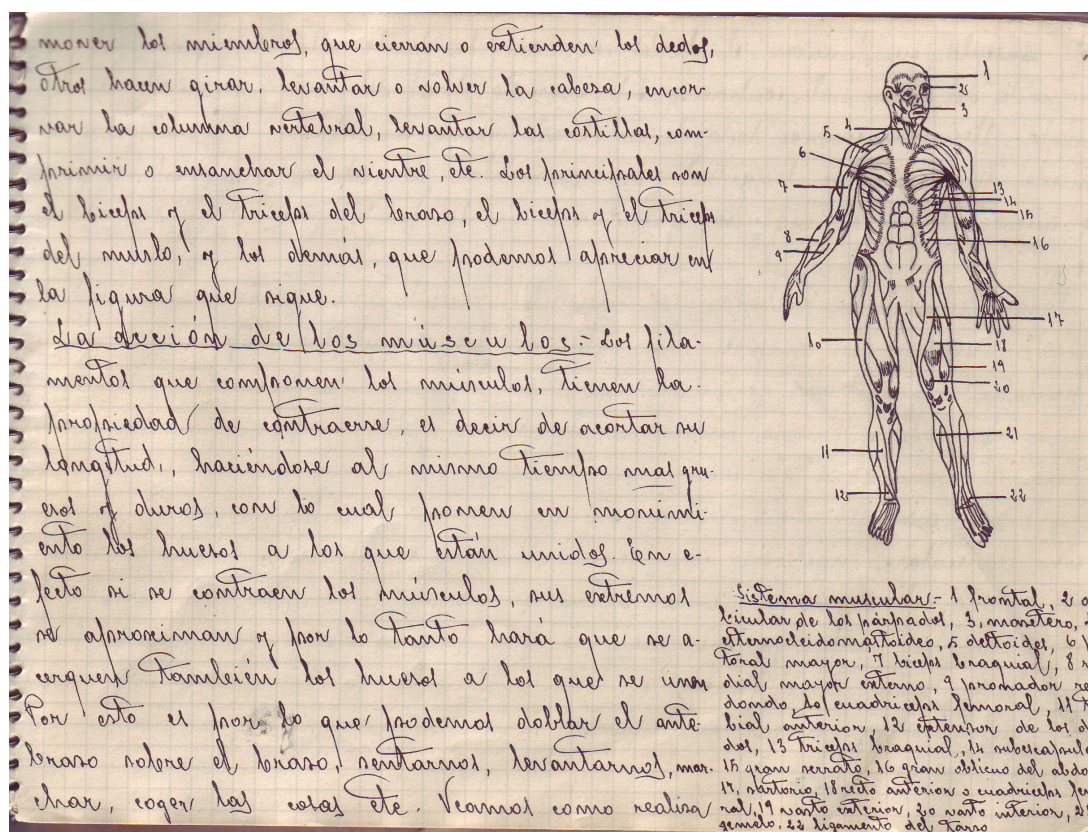 mover los miembros, que cierran o extienden los dedos,
otros hacen girar, levantar o volver la cabeza, encor-
var la columna vertebral, levantar las costillas, com-
primir o ensanchar el vientre, etc. Los principales son
el biceps y el triceps del brazo, el biceps y el triceps
del muslo, y los demás, que podemos apreciar en
la figura que sigue.
La acción de los músculos.- Los fila-
mentos que componen los músculos, tienen la
propiedad de contraerse, es decir de acortar su
longitud, haciéndose al mismo tiempo mas gru-
esos y duros, con lo cual ponen en movimi-
ento los huesos a los que están unidos. En e-
fecto si se contraen los músculos, sus extremos
se aproximan y por lo tanto hará que se a-
cerquen también los huesos a los que se unen
Por esto es por lo que podemos doblar el ante-
brazo sobre el brazo, sentarnos, levantarnos, mar-
char, coger las cosas etc. Veamos como realiza
1
2
3
4
5
6
7
8
9
10
11
12
13
14
15
16
17
18
19
20
21
22
Sistema muscular- 1 frontal, 2 o
bicular de los párpados, 3, masetero,
esternocleidomastoideo, 5 deltoides, 6
toral mayor, 7 biceps braquial, 8
dial mayor externo, 9 pronador re
dondo, 10 cuadriceps femoral, 11 t
bial anterior, 12 extensor de los
dos, 13 triceps braquial, 14 subescapul
15 gran serrato, 16 gran oblicuo del abdo
17, sartorio, 18 recto anterior o cuadriceps fe
ral, 19 vasto exterior, 20 vasto interior, 2
gemelo, 22 ligamento del tarso